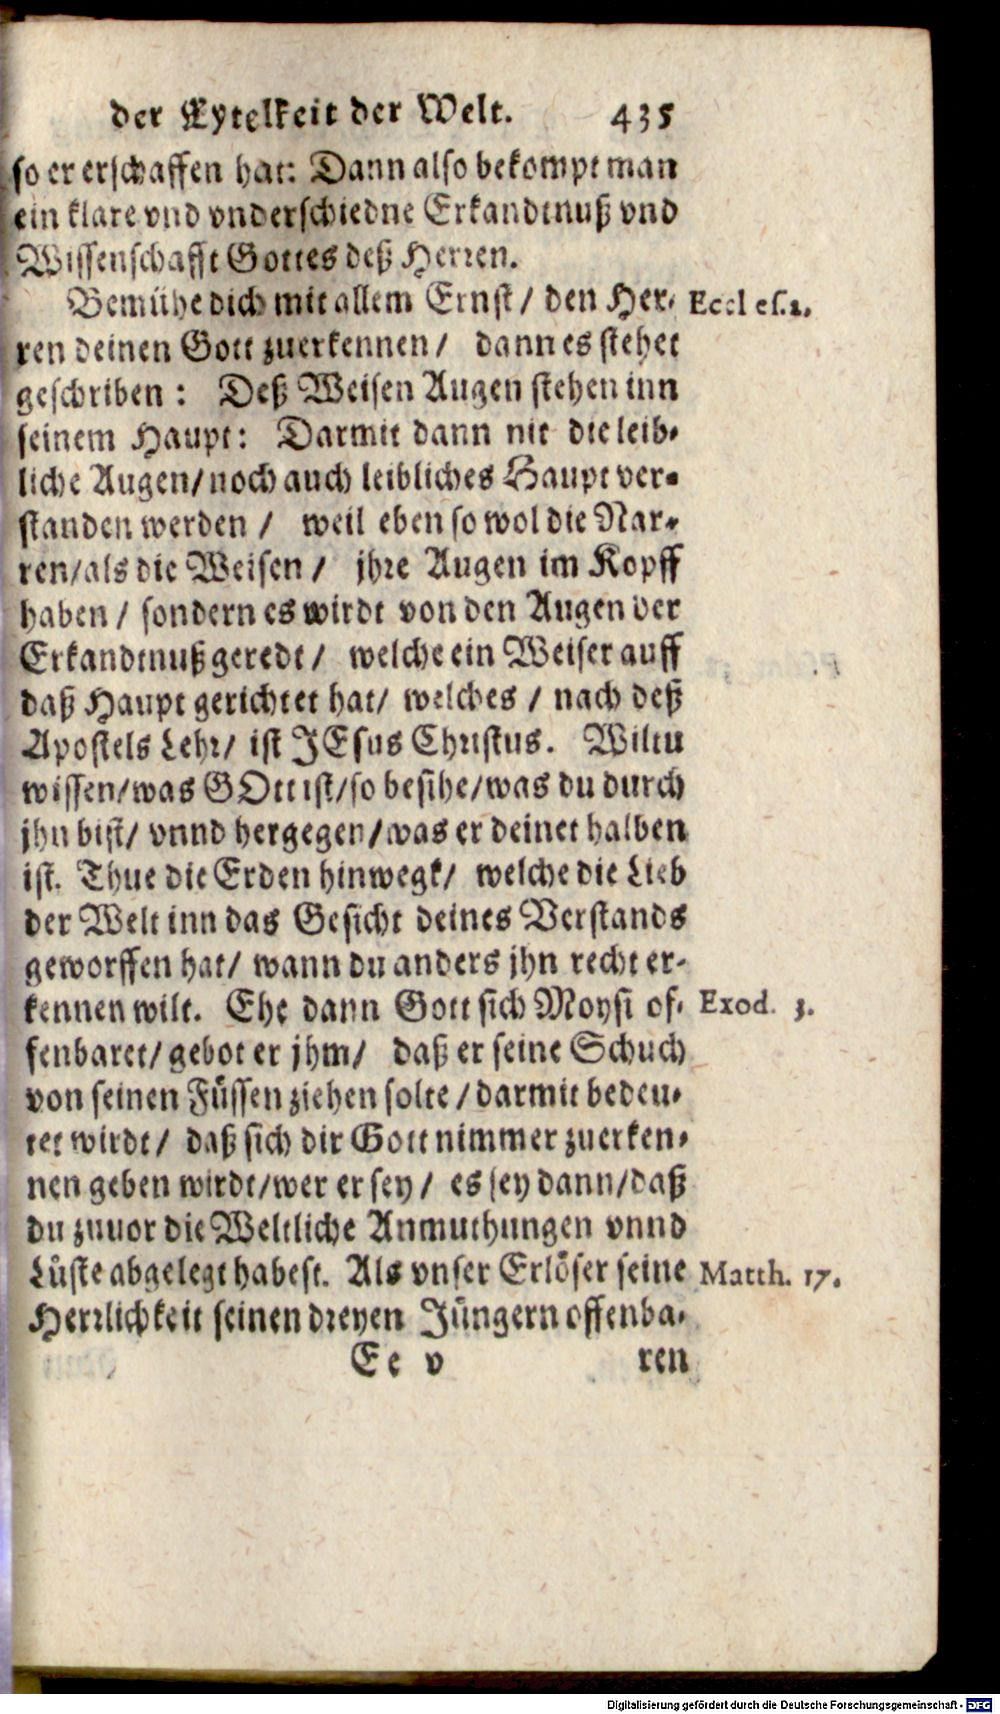 der Eytelkeit der Welt. 435
so er erschaffen hat: Dann also bekompt man
ein klare vnd vnderschiedne Erkandtnuß vnd
Wissenschafft Gottes deß Herren.
Bemühe dich mit allem Ernst / den Her- Eccl es.2.
ren deinen Gott zuerkennen / dann es stehet
geschriben : Deß Weisen Augen stehen inn
seinem Haupt: Darmit dann nit die leib-
liche Augen/ noch auch leibliches Haupt ver-
standen werden / weil eben so wol die Nar-
ren/als die Weisen / jhre Augen im Kopff
haben / sondern es wirdt von den Augen der
Erkandtnuß geredt / welche ein Weiser auff
daß Haupt gerichtet hat/ welches / nach deß
Apostels Lehr/ ist JEsus Christus. Wiltu
wissen/was GOtt ist/so besihe/was du durch
jhn bist/ vnnd hergegen/was er deinet halben
ist. Thue die Erden hinwegk/ welche die Lieb
der Welt inn das Gesicht deines Verstands
geworffen hat/ wann du anders jhn recht er-
kennen wilt. Ehe dann Gott sich Moysi of- Exod. 3.
fenbaret/ gebot er jhm/ daß er seine Schuch
von seinen Füssen ziehen solte / darmit bedeu-
tet wirdt/ daß sich dir Gott nimmer zuerken-
nen geben wirdt/wer er sey / es sey dann/daß
du zuuor die Weltliche Anmuthungen vnnd
Lüste abgelegt habest. Als vnser Erlöser seine Matth. 17.
Herrlichkeit seinen dreyen Jüngern offenba-
Ee v ren
Digitalisierung gefördert durch die Deutsche Forschungsgemeinschaft - DFG